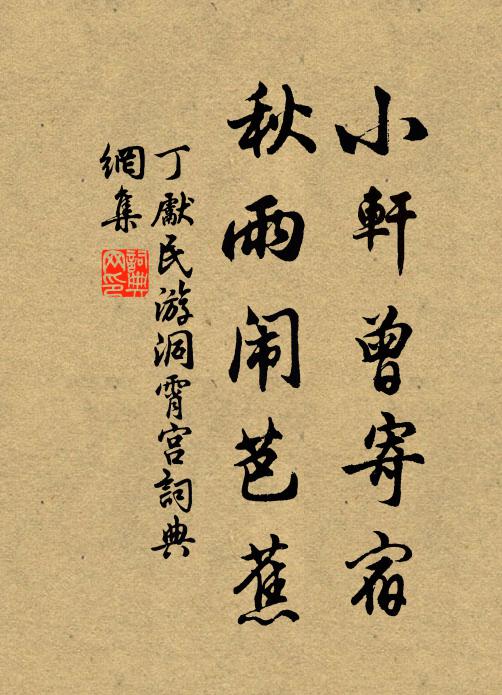 小軒曾寄宿
秋雨闹芭蕉
丁獻民游洞霄宮詞典
網集
詞典
网印